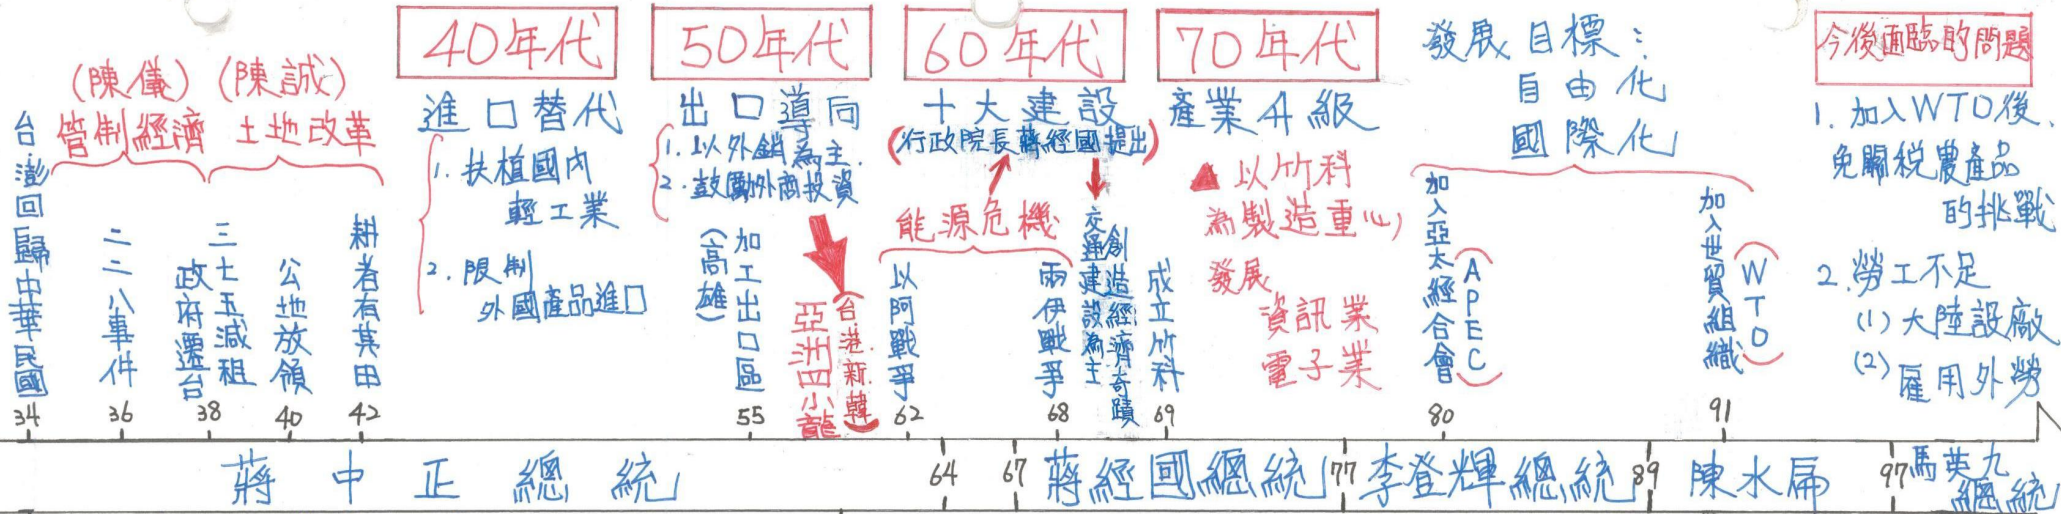 台澎回歸中華民國
34
(陳儀)
管制經濟
二二八事件
36
(陳誠)
土地改革
政府遷台
三七五減租
38
公地放領
40
耕者有其田
42
40年代
進口替代
1. 扶植國內
輕工業
2. 限制
外國產品進口
50年代
出口導向
1. 以外銷為主.
2. 鼓勵外商投資
(高雄)
加工出口區
55
亞洲四小龍
(台.港.新.韓)
60年代
十大建設
(行政院長蔣經國提出)
能源危機
以阿戰爭
62
兩伊戰爭
68
交通建設為主
創造經濟奇蹟
70年代
產業升級
▲以竹科
為製造重心)
發展
資訊業
電子業
成立竹科
69
發展目標:
自由化
國際化
加入亞太經合會
(APEC)
80
加入世貿組織
(WTO)
91
今後面臨的問題
1. 加入WTO後.
免關稅農產品
的挑戰
2. 勞工不足
(1) 大陸設廠
(2) 雇用外勞
蔣中正總統
64
67
蔣經國總統
77
李登輝總統
89
陳水扁
97
馬英九
總統